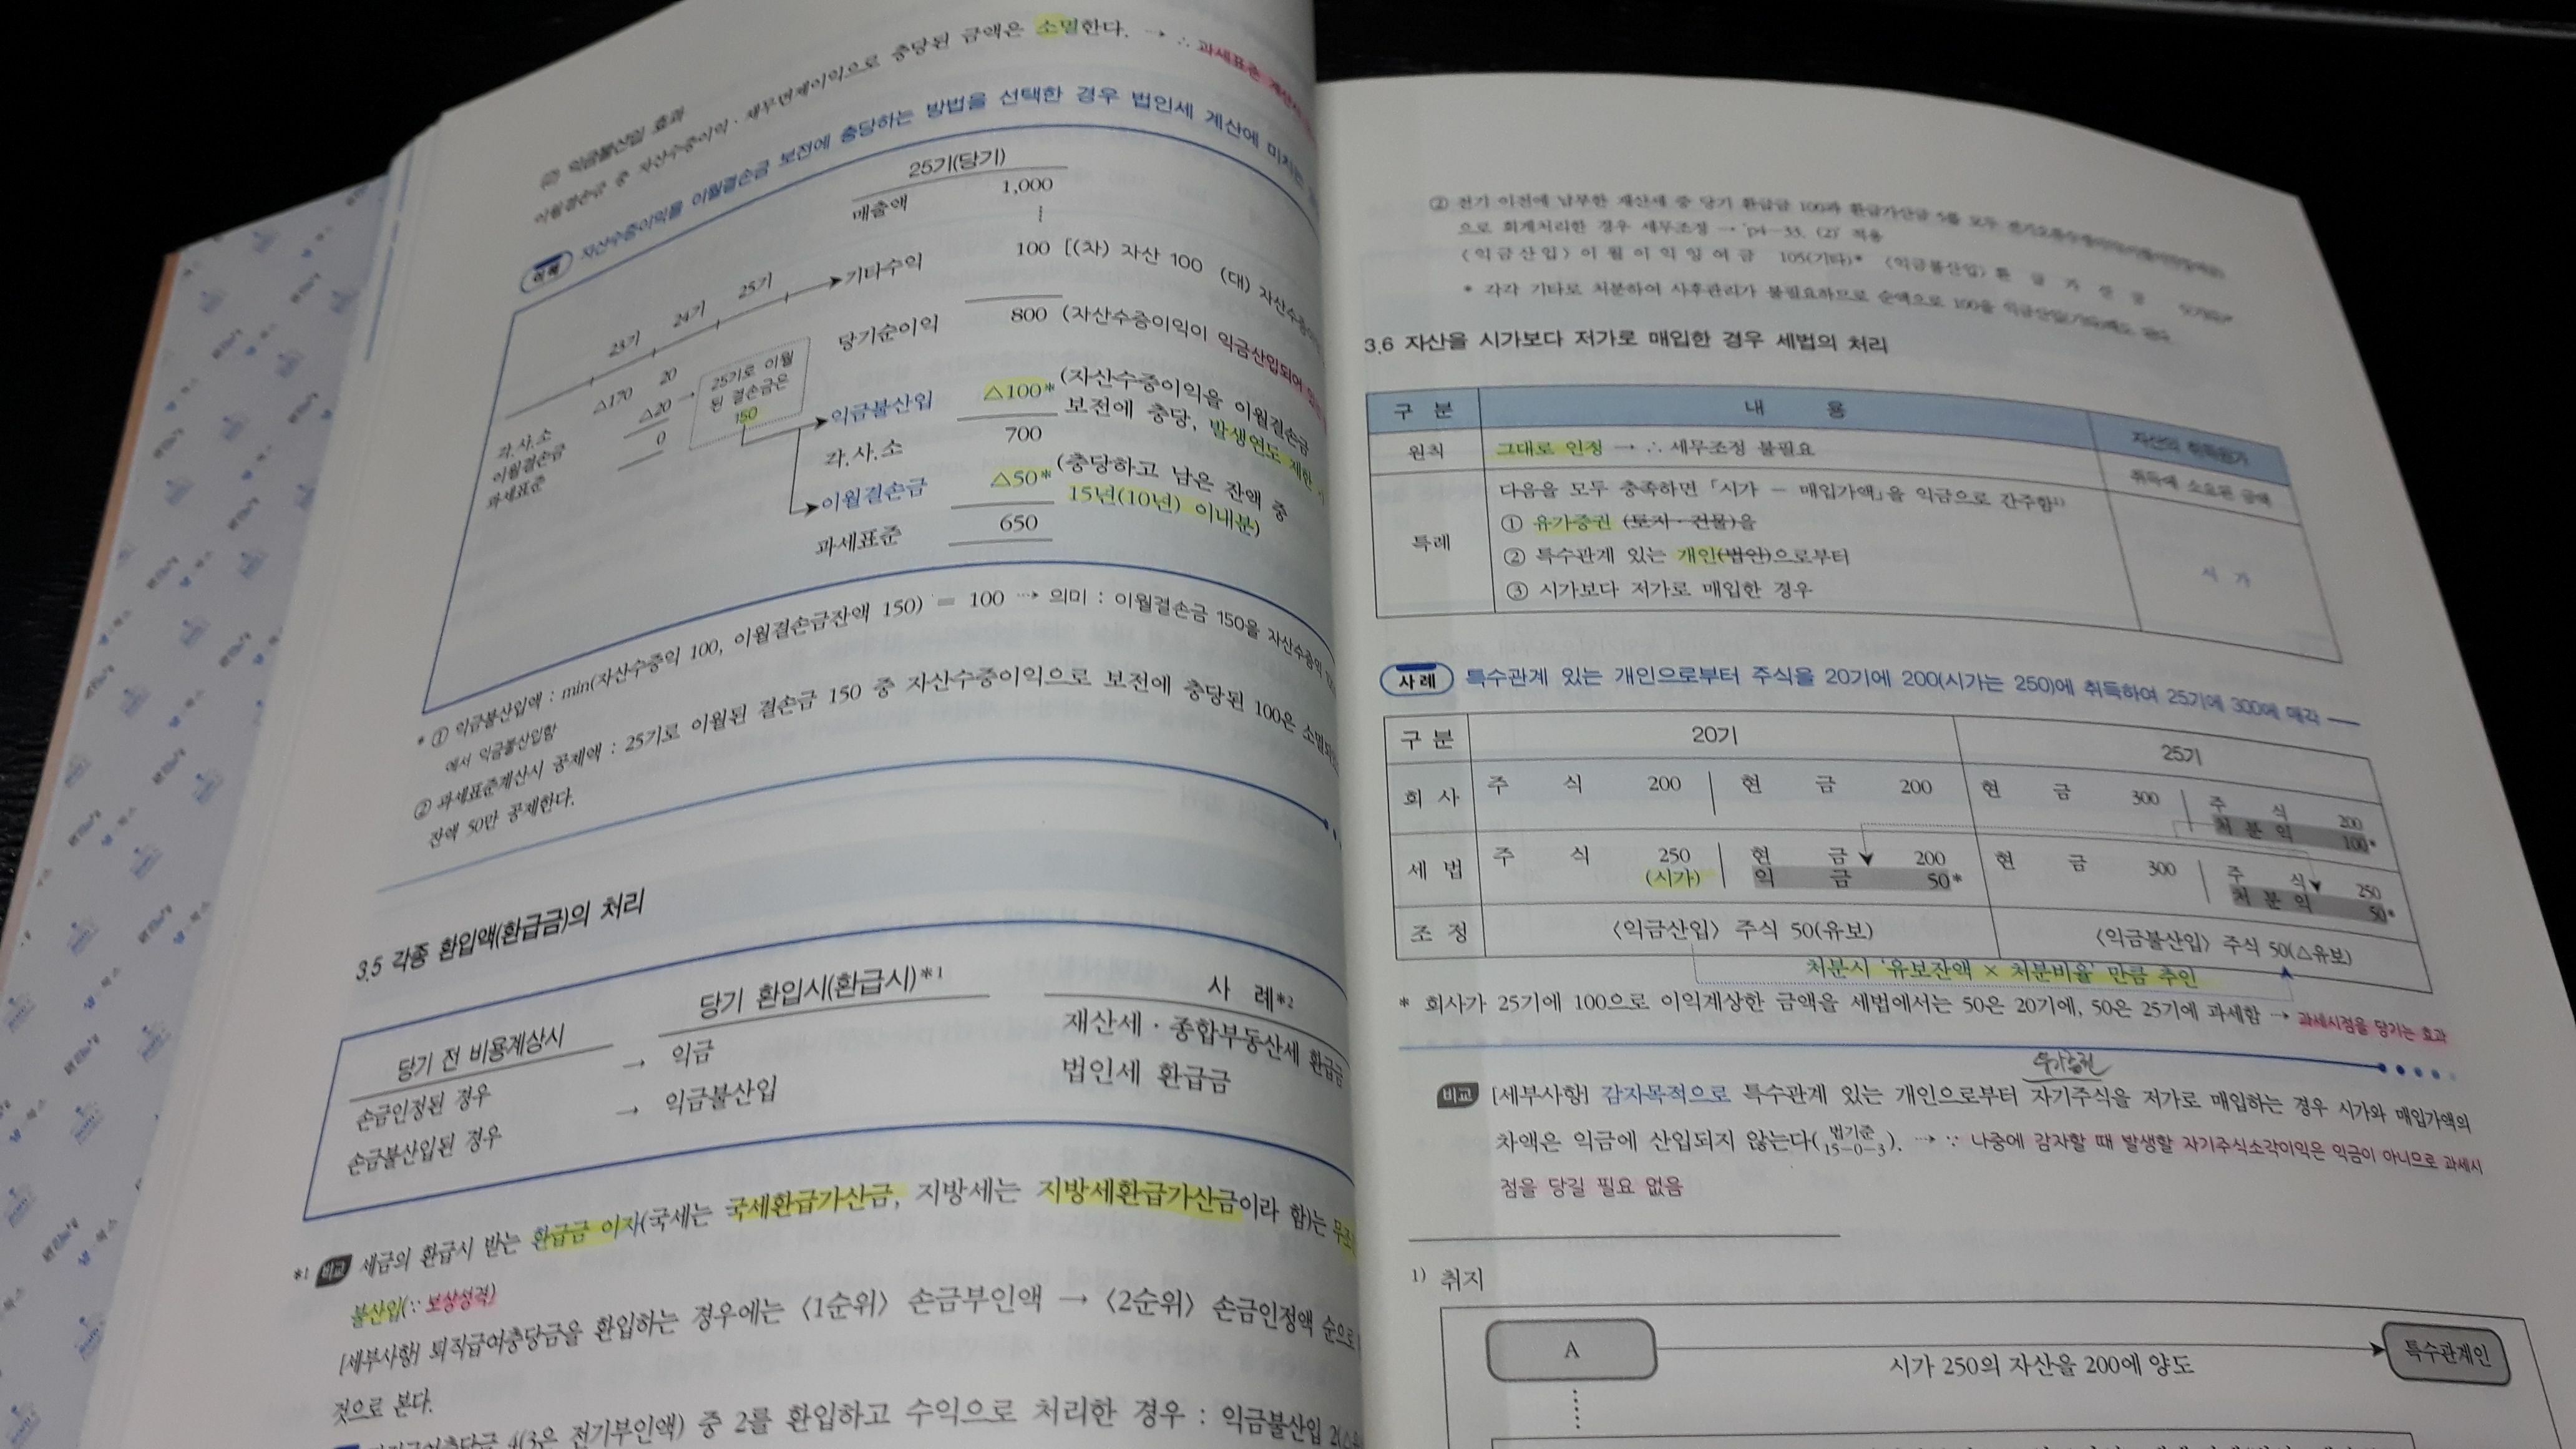 (2) 익금불산입 효과
이월결손금 중 자산수증이익 · 채무면제이익으로 충당된 금액은 소멸한다. → ∴ 과세표준 계산시
이해 자산수증이익을 이월결손금 보전에 충당하는 방법을 선택한 경우 법인세 계산에 미치는
25기(당기)
매출액 1,000
⋮
23기 24기 25기 기타수익 100 [(차) 자산 100 (대) 자산수증이익
당기순이익 800 (자산수증이익이 익금산입되어
25기로 이월
된 결손금은
150
익금불산입 △100* (자산수증이익을 이월결손금
보전에 충당, 발생연도 제한
각.사.소 700
이월결손금 △50* (충당하고 남은 잔액 중
15년(10년) 이내분)
과세표준 650
각.사.소 △170 20
이월결손금 △20 →
과세표준 0
* ① 익금불산입액 : min(자산수증익 100, 이월결손금잔액 150) = 100 ⋯→ 의미 : 이월결손금 150을 자산수증익
에서 익금불산입함
② 과세표준계산시 공제액 : 25기로 이월된 결손금 150 중 자산수증이익으로 보전에 충당된 100은 소멸되
잔액 50만 공제한다.
3.5 각종 환입액(환급금)의 처리
당기 전 비용계상시 당기 환입시(환급시)*1 사 례*2
손금인정된 경우 → 익금 재산세 · 종합부동산세 환급금
손금불산입된 경우 → 익금불산입 법인세 환급금
*1 비교 세금의 환급시 받는 환급금 이자(국세는 국세환급가산금, 지방세는 지방세환급가산금이라 함)는 무조
불산입(∵ 보상성격)
[세부사항] 퇴직급여충당금을 환입하는 경우에는 〈1순위〉 손금부인액 → 〈2순위〉 손금인정액 순으로
것으로 본다.
퇴직급여충당금 4(3은 전기부인액) 중 2를 환입하고 수익으로 처리한 경우 : 익금불산입 2(△
② 전기 이전에 납부한 재산세 중 당기 환급금 100과 환급가산금 5를 모두
으로 회계처리한 경우 세무조정 → 'p4-33. (2)' 적용
〈익금산입〉 이 월 이 익 잉 여 금 105(기타)* 〈익금불산입〉 환 급 가 산 금 5(기타)*
* 각각 기타로 처분하여 사후관리가 불필요하므로 순액으로 100을 익금산입(기타)해도 된다.
3.6 자산을 시가보다 저가로 매입한 경우 세법의 처리
구 분 내 용 자산의 취득원가
원칙 그대로 인정 → ∴ 세무조정 불필요 취득에 소요된 금액
다음을 모두 충족하면 「시가 - 매입가액」을 익금으로 간주함1)
① 유가증권 (토지 · 건물)을
특례 ② 특수관계 있는 개인(법인)으로부터 시 가
③ 시가보다 저가로 매입한 경우
사례 특수관계 있는 개인으로부터 주식을 20기에 200(시가는 250)에 취득하여 25기에 300에 매각
구 분 20기 25기
회 사 주 식 200 현 금 200 현 금 300 주 식 200
처 분 익 100*
세 법 주 식 250 현 금 200 현 금 300 주 식 250
(시가) 익 금 50* 처 분 익 50*
조 정 〈익금산입〉 주식 50(유보) 〈익금불산입〉 주식 50(△유보)
처분시 '유보잔액 × 처분비율' 만큼 추인
* 회사가 25기에 100으로 이익계상한 금액을 세법에서는 50은 20기에, 50은 25기에 과세함 → 과세시점을 당기는 효과
유가증권
비교 [세부사항] 감자목적으로 특수관계 있는 개인으로부터 자기주식을 저가로 매입하는 경우 시가와 매입가액의
차액은 익금에 산입되지 않는다(법기준 15-0-3). ⋯→ ∵ 나중에 감자할 때 발생할 자기주식소각이익은 익금이 아니므로 과세시
점을 당길 필요 없음
1) 취지
A 특수관계인
시가 250의 자산을 200에 양도